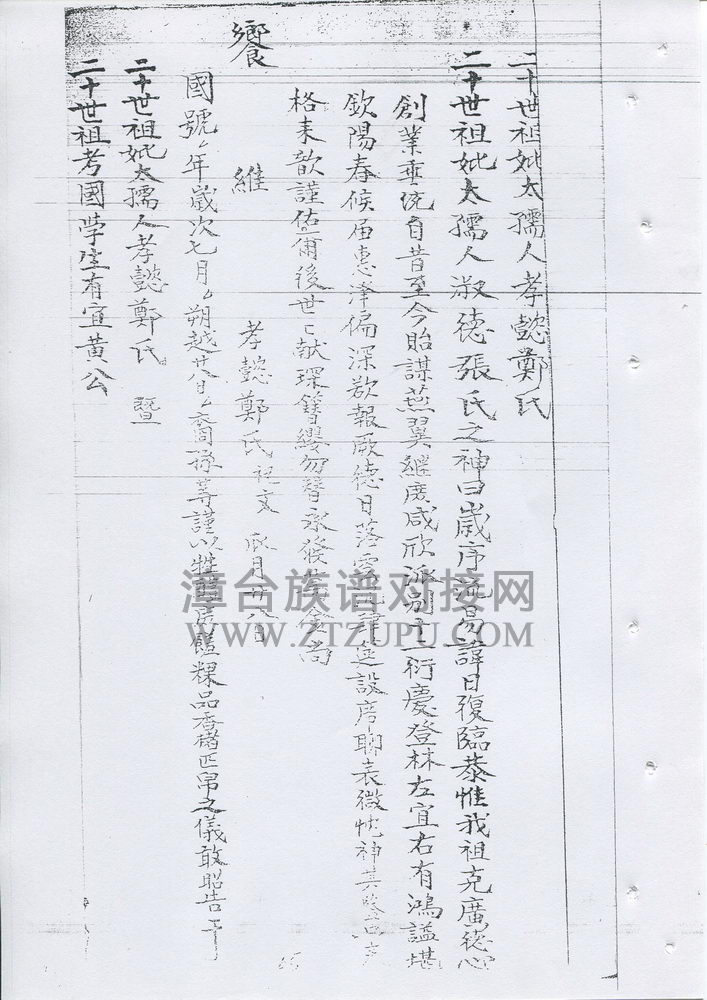 二十世祖妣太孺人孝懿鄭氏
二十世祖妣太孺人淑德張氏之神曰歲序流易諱日復臨恭惟我祖克廣德心
創業垂統自昔至今貽謀燕翼繼序咸欣派別十一衍慶登林左宜右有鴻謚堪
欽陽春候届惠澤偏深欲報厥德日落肆筵設席聊表微忱神其
格來歆謹佑爾後世世献琛簪纓勿替永發尚
饗
孝懿鄭氏祝文 月廿八日
維
國號〻年歲次七月〻朔越廿八日〻裔孫等謹以牲醴粿品香楮疋帛之儀敢昭告于
二十世祖妣太孺人孝懿鄭氏 暨
二十世祖考國學生有宜黃公
漳台族谱对接网
WWW.ZTZUPU.COM